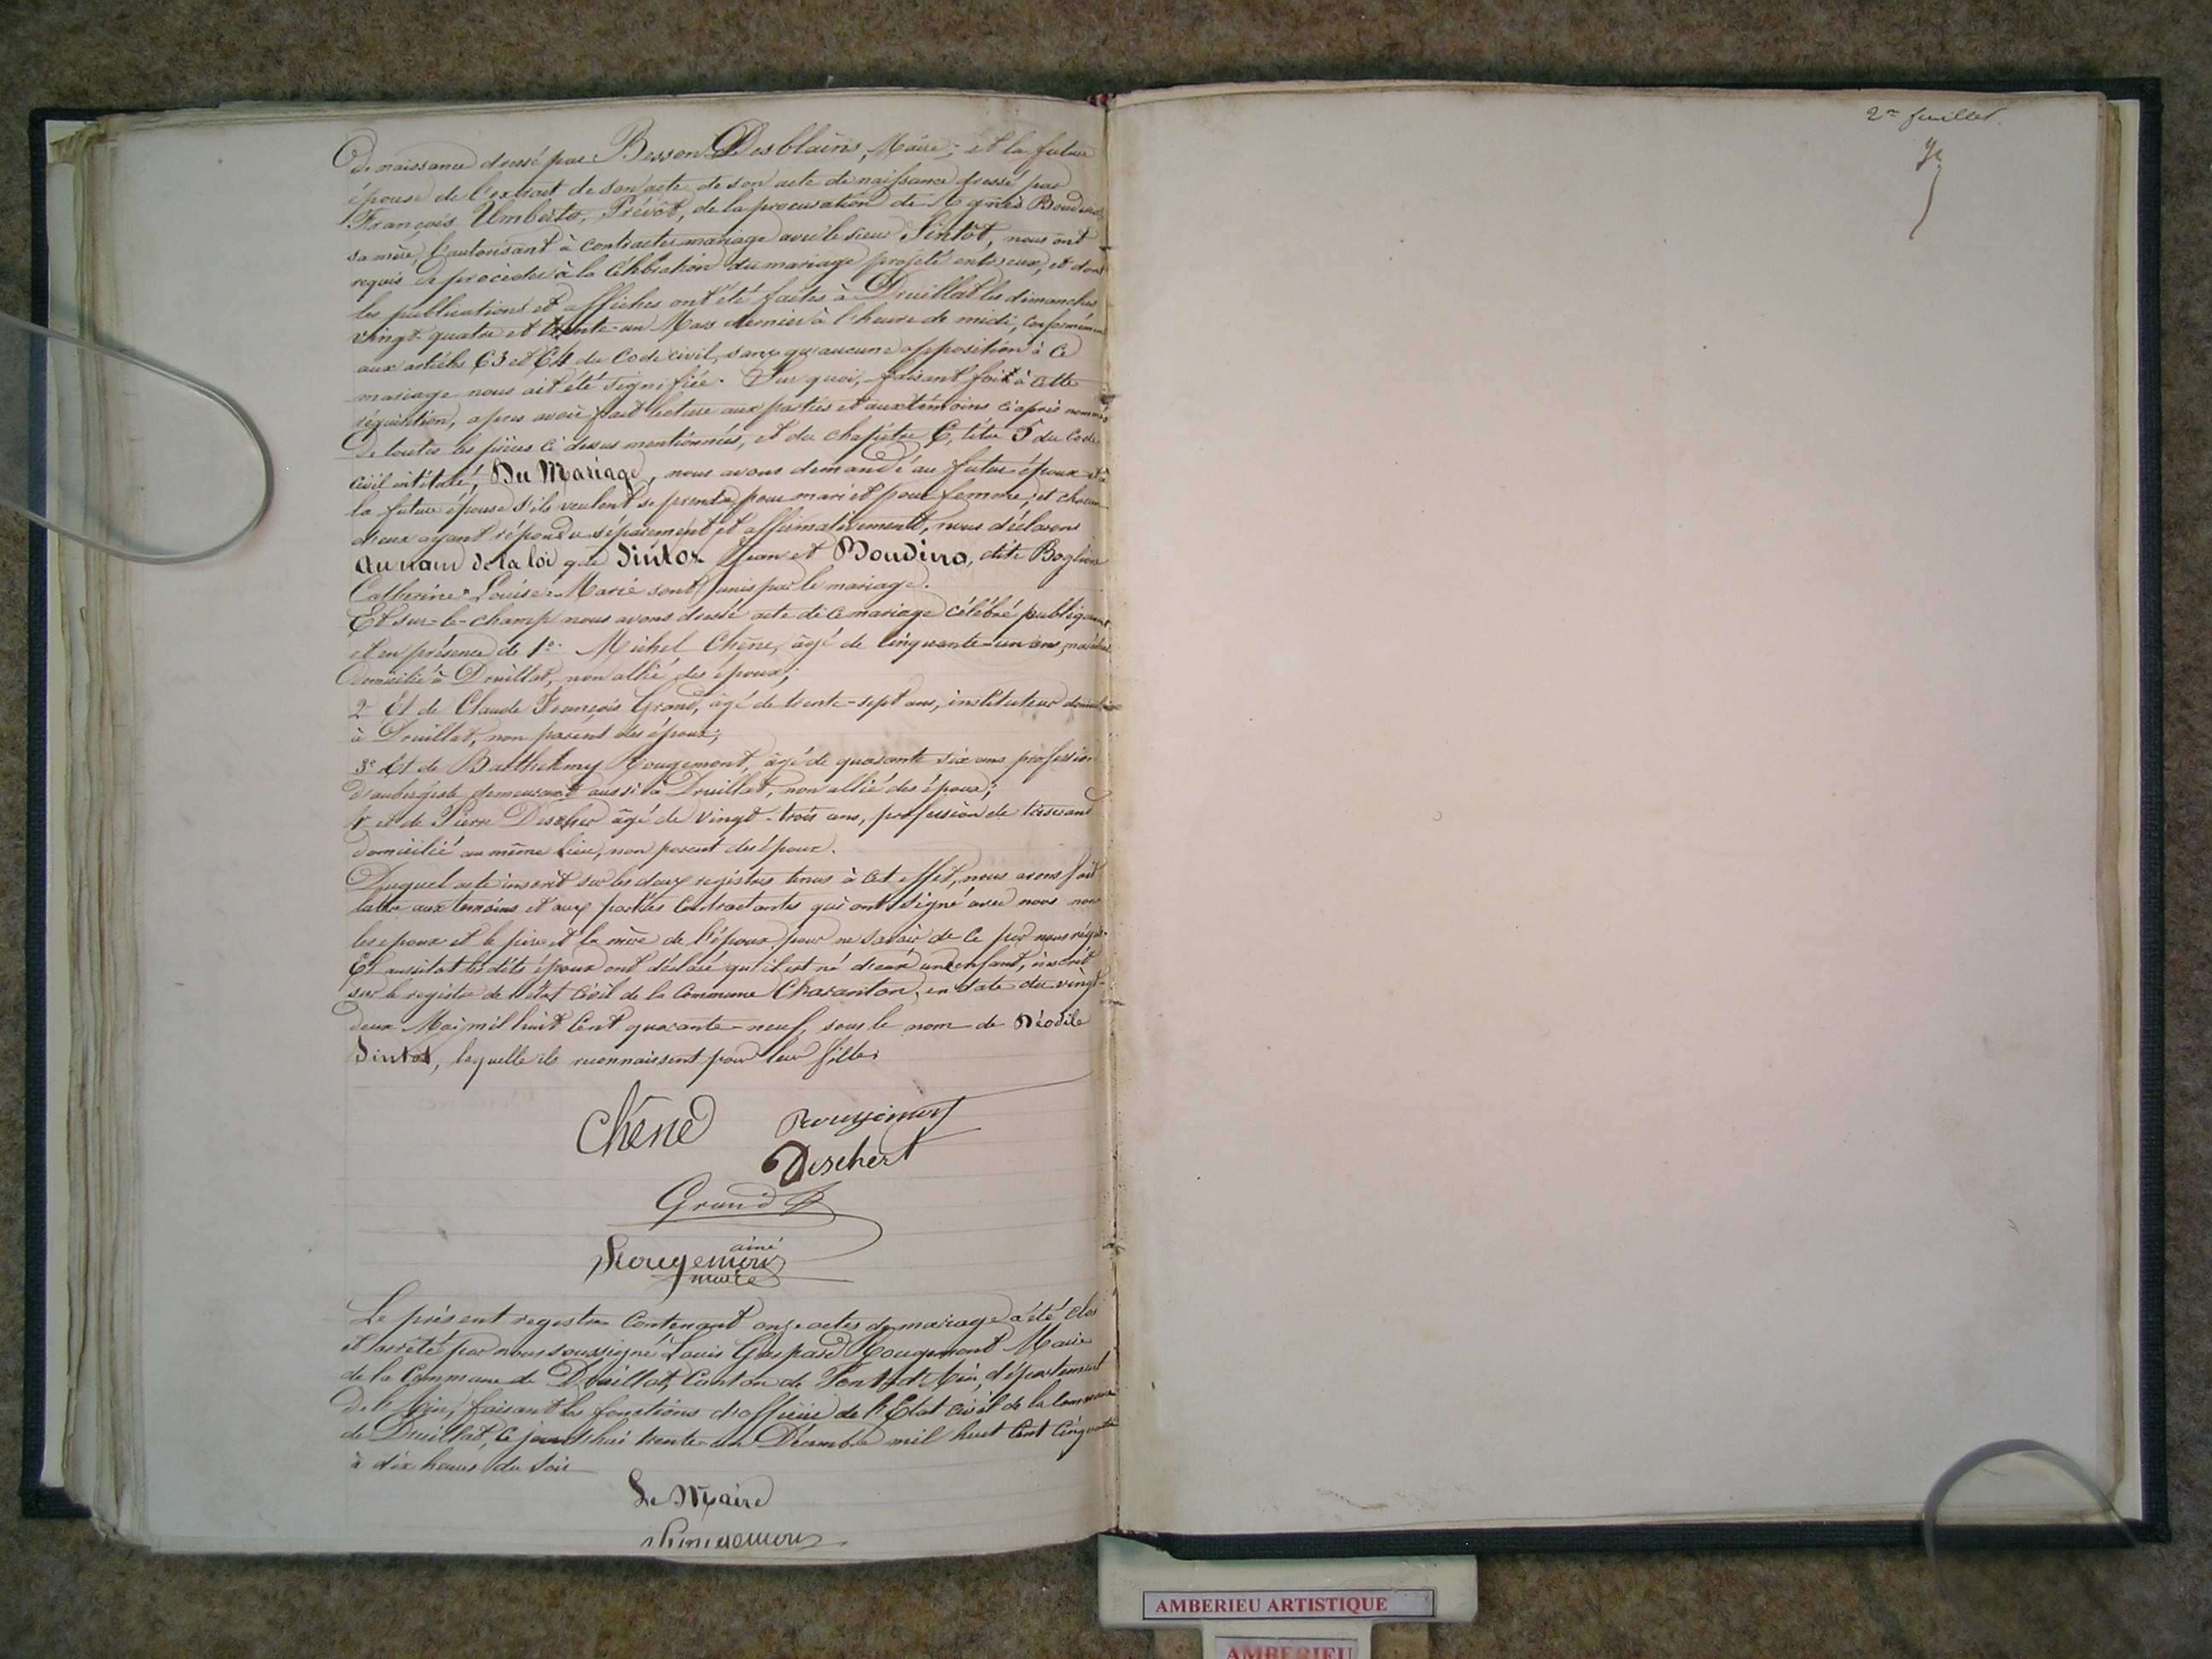 de naissance dressé par Besson Desblains, Maire; et la future
épouse de l'extrait de son acte de son acte de naissance dressé par
François Umberto, Prévôt, de la procuration de Agnès Boudino
sa mère, l'autorisant à contracter mariage avec le sieur Sintôt, nous ont
requis de procéder à la célébration du mariage projeté entr'eux, et dont
les publications et affiches ont été faites à Druillat les dimanches
vingt-quatre et trente-un Mars dernier à l'heure de midi, conformément
aux articles 63 et 64 du Code civil, sans qu'aucune opposition à ce
mariage nous ait été signifiée. Sur quoi, faisant foit à cette
réquisition, après avoir fait lecture aux parties et aux témoins ci après nommés
De toutes les pièces ci dessus mentionnées, et du chapitre 6, titre 5 du Code
civil intitulé, Du Mariage, nous avons demandé au futur époux et à
la future épouse s'ils veulent se prendre pour mari et pour femme, et chacun
d'eux ayant répondu séparement et affirmativement, nous déclarons
au nom de la loi que Sintot Jean et Boudino, dite Boglione
Catherine Louise Marie sont unis par le mariage.
Et sur-le-champ nous avons dressé acte de ce mariage célébré publiquement
et en présence de 1°. Michel Chêne, âgé de cinquante-un ans,
domicilié à Druillat, non allié des époux;
2° Et de Claude François Grand, âgé de trente-sept ans, instituteur domicilié
à Druillat, non parent des époux;
3° Et de Barthelemy Rougemont, âgé de quarante six ans profession
d'aubergiste demeurant aussi à Druillat, non allié des époux;
4° et de Pierre Descher âgé de vingt-trois ans, profession de tisserand
domicilié au même lieu, non parent des époux.
Duquel acte inscrit sur les deux registres tenus à cet effet, nous avons fait
lecture aux temoins et aux parties contractantes qui ont signé avec nous non
les epoux et le père et la mère de l'époux pour ne savoir de ce par nous requis.
Et aussitot les dits époux ont déclaré qu'il est né d'eux un enfant, inscrit
sur le registre de l'état civil de la Commune Charanton, en date du vingt-
deux Mai mil huit cent quarante-neuf, sous le nom de Déodile
Sintot, laquelle ils reconnaissent pour leur fille.
Chêne Rougemont
Deschert
Grand
ainé
Rougemont
maire
Le présent registre contenant onze actes de mariage a été clos
et arrêté par nous soussigné Louis Gaspard Rougemont Maire
de la Commune de Druillat, Canton de Pont d'Ain, département
De l'Ain, faisant les fonctions d'officier de l'Etat civil de la commune
de Druillat, ce jourd'hui trente un Décembre mil huit cent cinquante
à dix heures du soir
Le Maire
Rougemont
2me feuillet.
AMBERIEU ARTISTIQUE
AMBERIEU